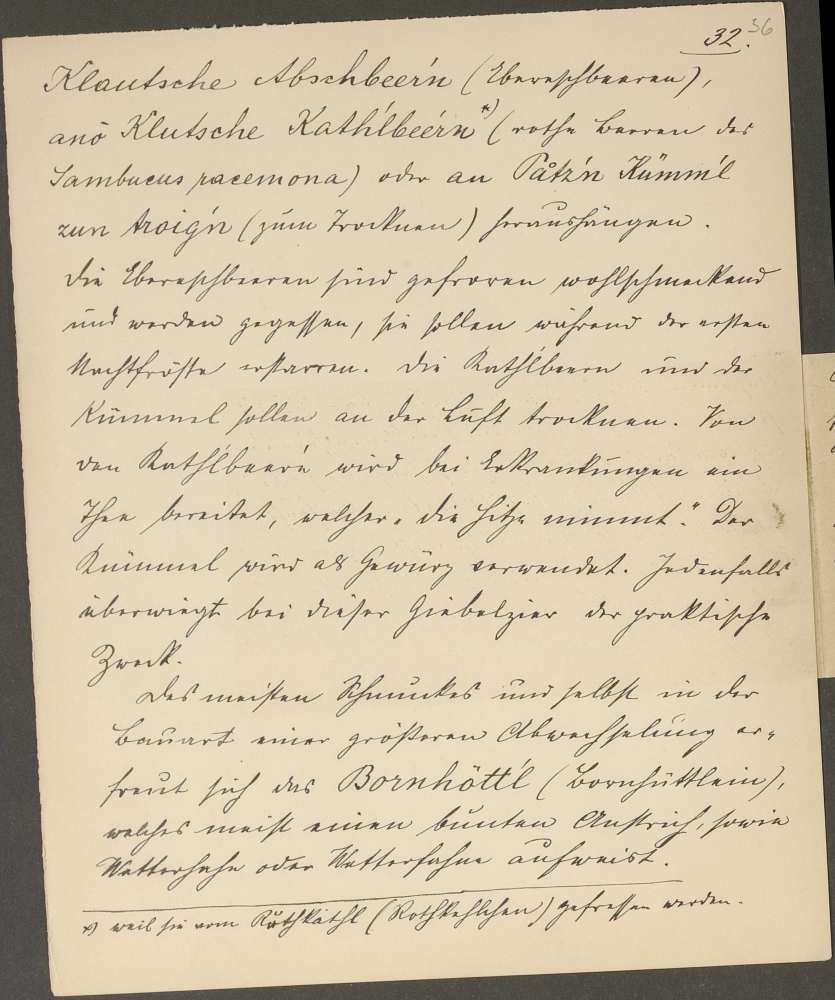 32. 36
Klautsche Abschbeer'n (Ebereschbeeren),
anō Klutsche Kathl'beér'n *) (rothe Beeren des
Sambucus racemona) oder an Påtz'n Kümm'l
zun troig'n (zum Trocknen) heraushängen.
Die Ebereschbeeren sind gefroren wohlschmeckend
und werden gegessen, sie sollen während der ersten
Nachtfröste erstarren. Die Kathl'beern und der
Kümmel sollen an der Luft trocknen. Von
den Kathl'beer'n wird bei Erkrankungen ein
Thee bereitet, welcher „die Hitze nimmt." Der
Kümmel wird als Gewürz verwendet. Jedenfalls
überwiegt bei dieser Giebelzier der praktische
Zweck.
Des meisten Schmuckes und selbst in der
Bauart einer größeren Abwechselung er-
freut sich das Bornhött'l (Bornhüttlein),
welches meist einen bunten Anstrich, sowie
Wetterhahn oder Wetterfahne aufweist.
*) weil sie vom Růthkàthl (Rothkehlchen) gefressen werden.